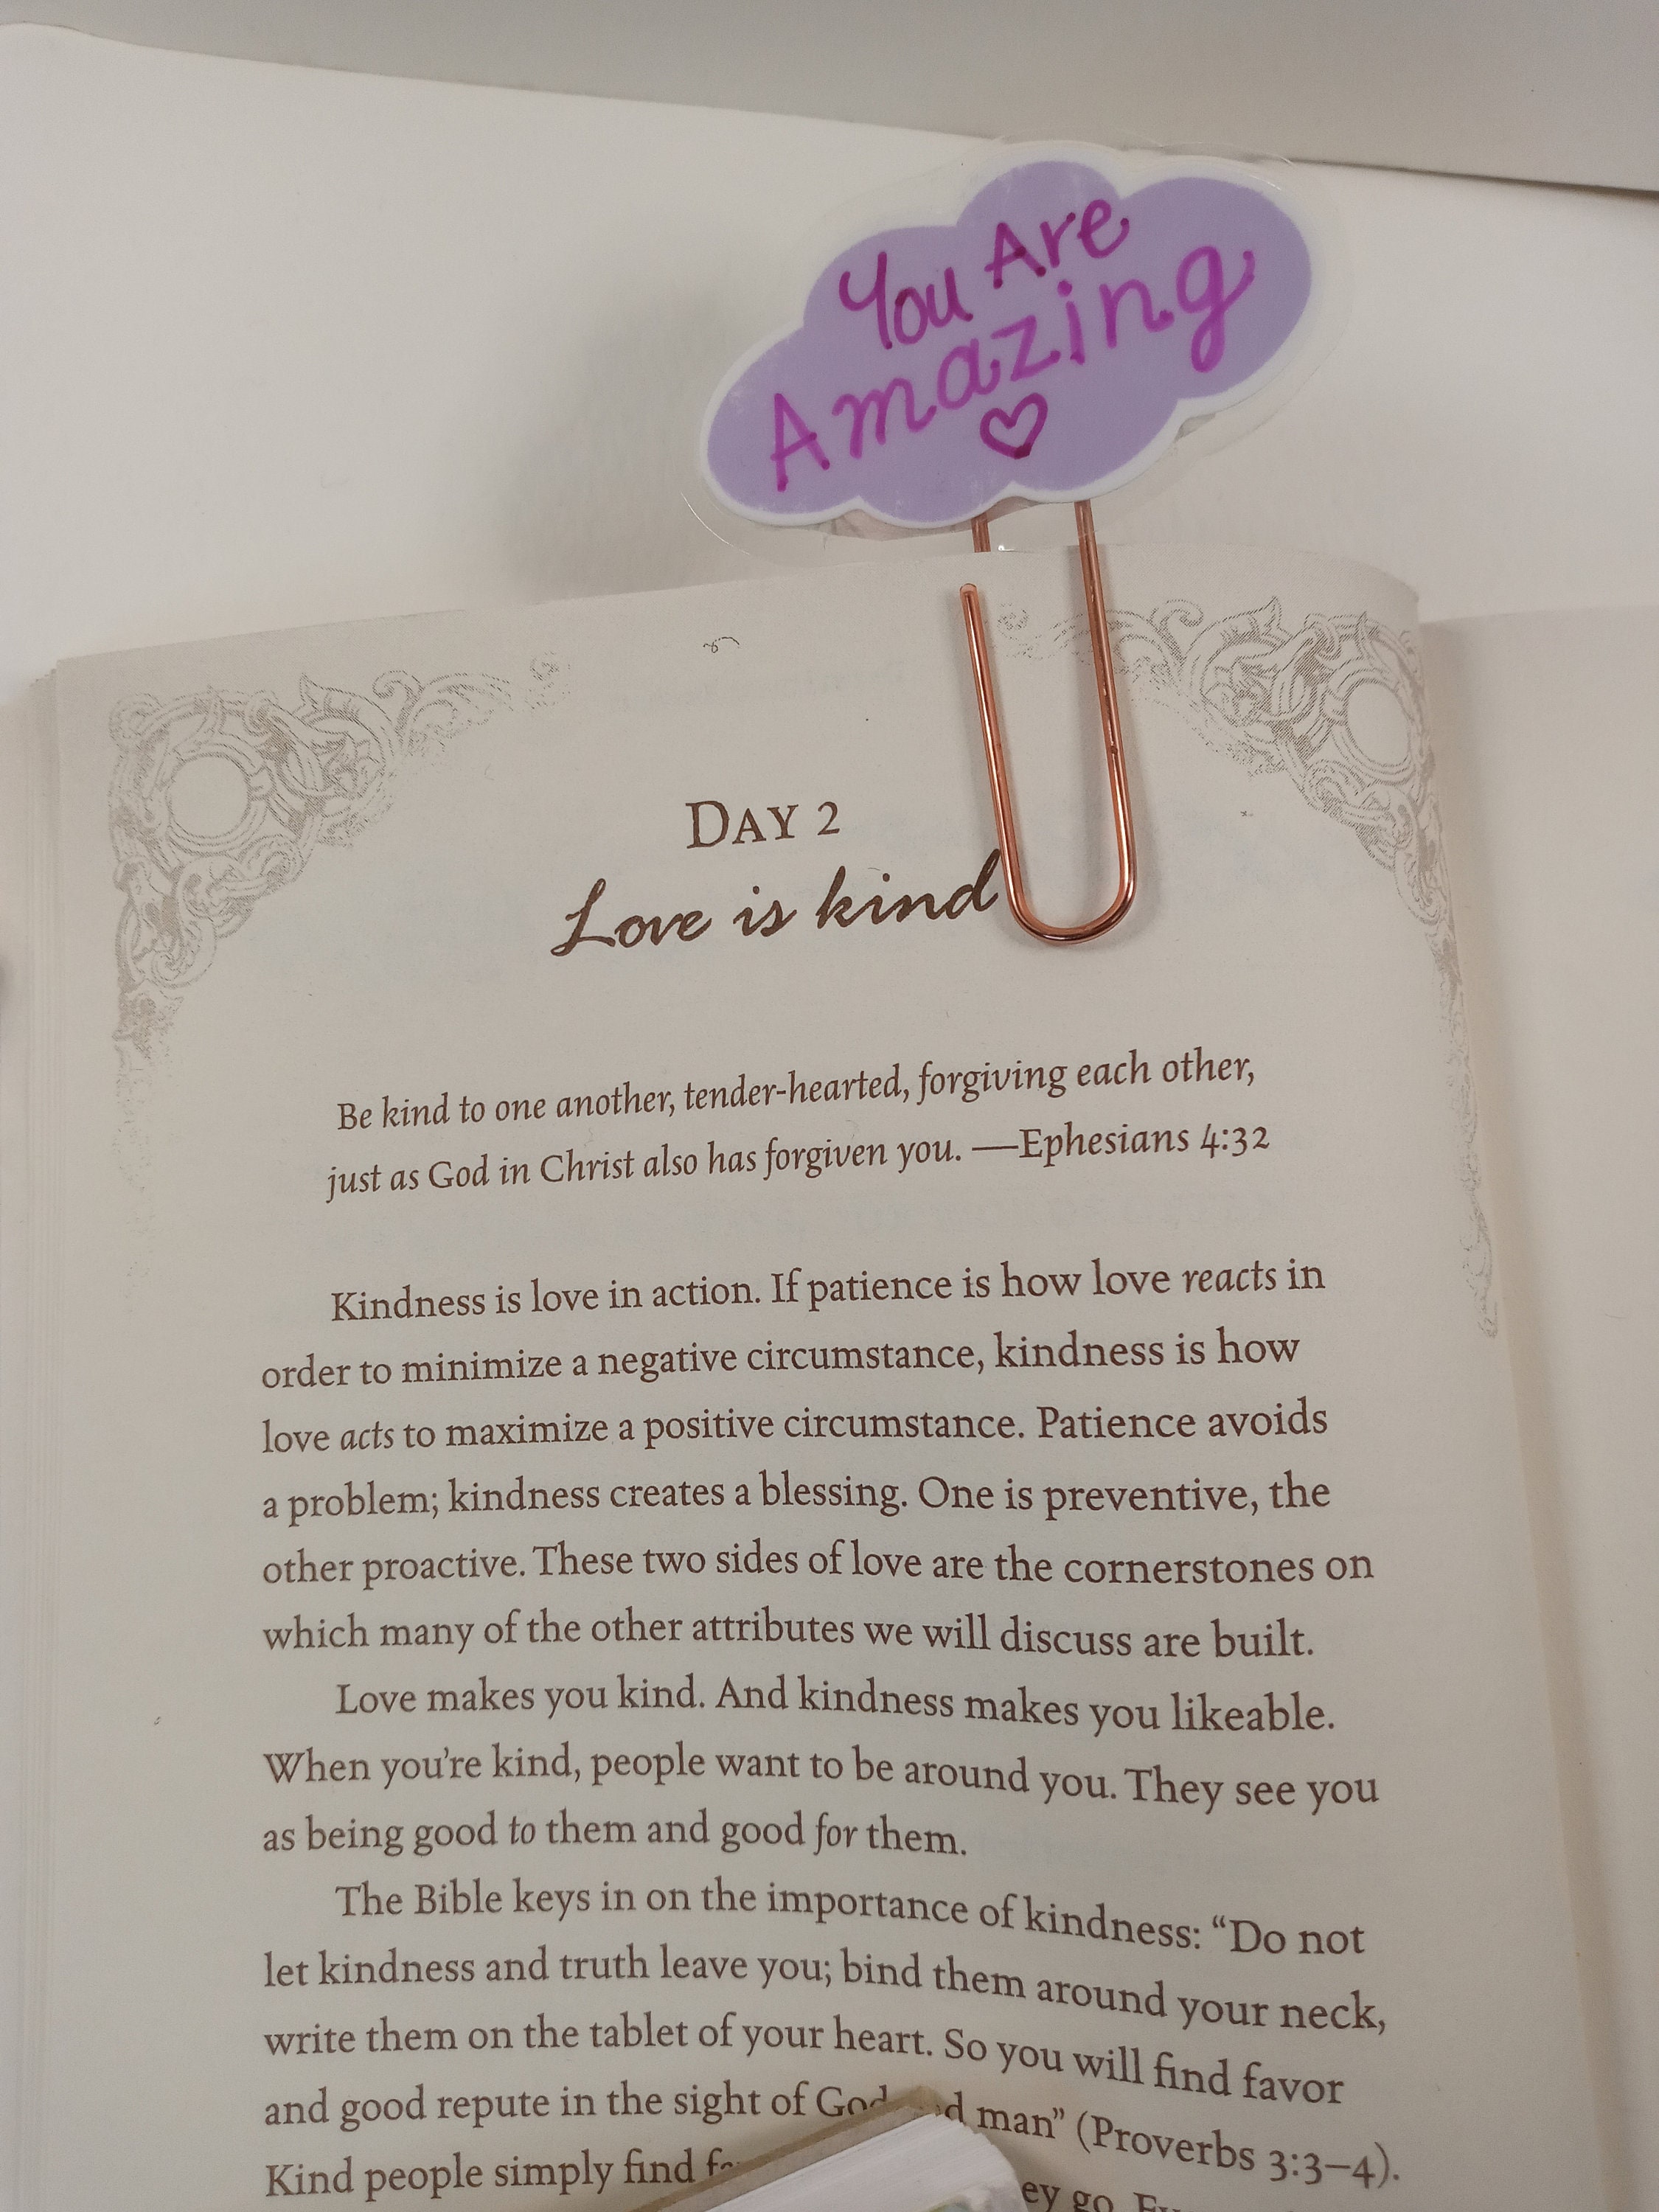 You Are
Amazing
DAY 2
Love is kind
Be kind to one another, tender-hearted, forgiving each other,
just as God in Christ also has forgiven you. —Ephesians 4:32
Kindness is love in action. If patience is how love reacts in
order to minimize a negative circumstance, kindness is how
love acts to maximize a positive circumstance. Patience avoids
a problem; kindness creates a blessing. One is preventive, the
other proactive. These two sides of love are the cornerstones on
which many of the other attributes we will discuss are built.
Love makes you kind. And kindness makes you likeable.
When you're kind, people want to be around you. They see you
as being good to them and good for them.
The Bible keys in on the importance of kindness: “Do not
let kindness and truth leave you; bind them around your neck,
write them on the tablet of your heart. So you will find favor
and good repute in the sight of God man” (Proverbs 3:3–4).
Kind people simply find go.